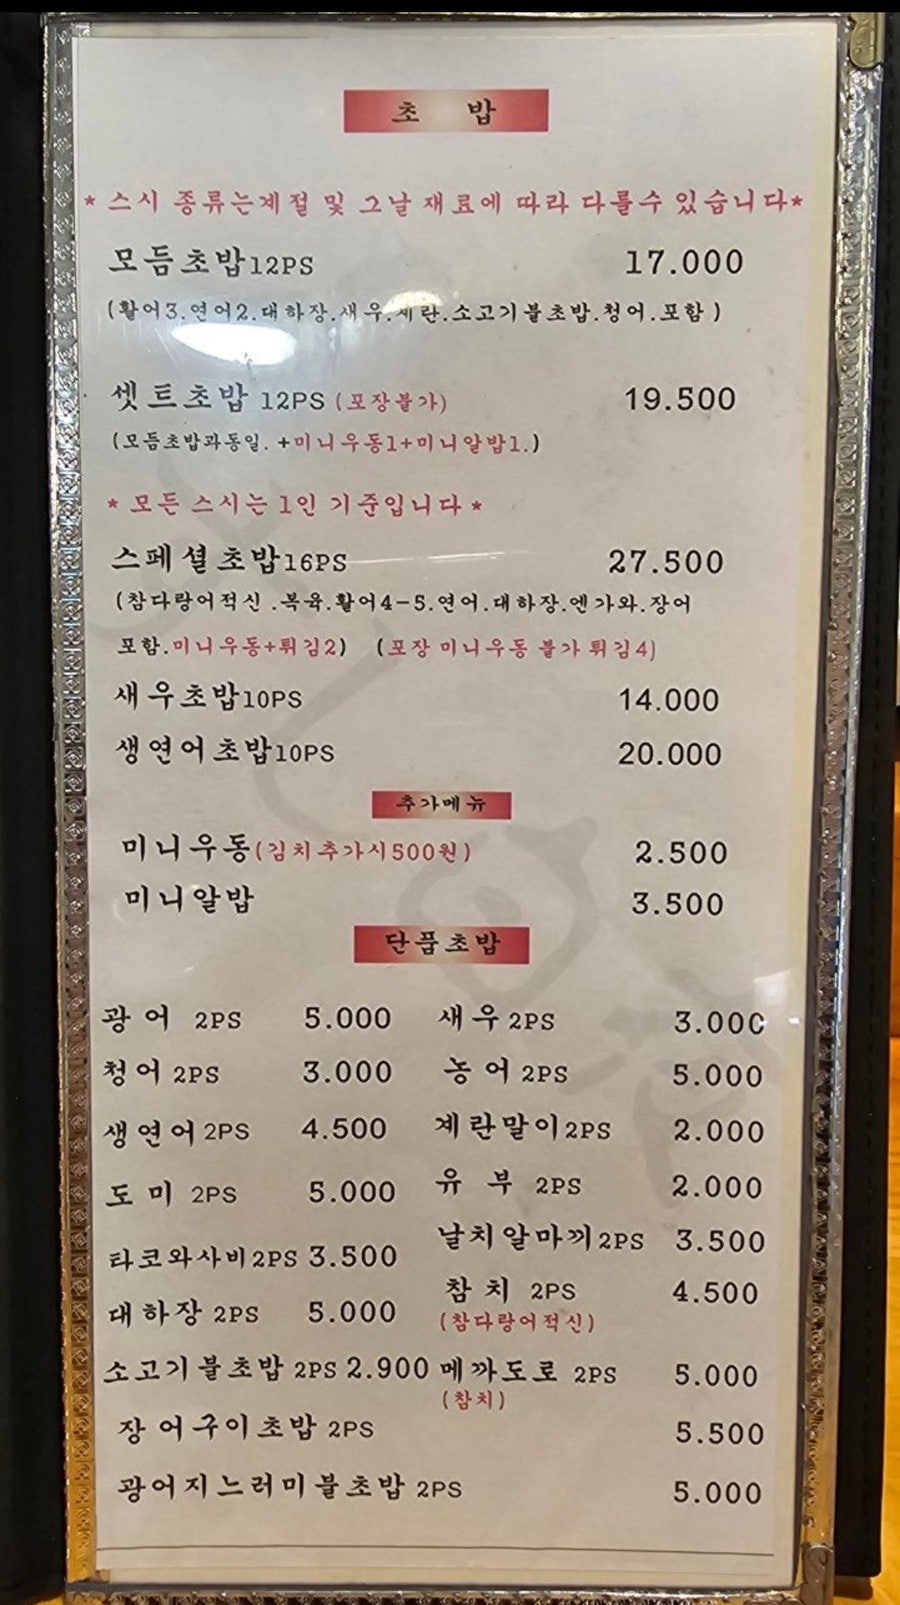 초 밥
* 스시 종류는계절 및 그날 재료에 따라 다를수 있습니다*
모듬초밥12PS 17.000
(활어3.연어2.대하장.새우.계란.소고기불초밥.청어.포함)
셋트초밥 12PS (포장불가) 19.500
(모듬초밥과동일. +미니우동1+미니알밥1.)
* 모든 스시는 1인 기준입니다 *
스페셜초밥16PS 27.500
(참다랑어적신 .복육.활어4-5.연어.대하장.엔가와.장어
포함.미니우동+튀김2) (포장 미니우동 불가 튀김4)
새우초밥10PS 14.000
생연어초밥10PS 20.000
추가메뉴
미니우동(김치추가시500원) 2.500
미니알밥 3.500
단품초밥
광어 2PS 5.000 새우 2PS 3.000
청어 2PS 3.000 농어 2PS 5.000
생연어 2PS 4.500 계란말이2PS 2.000
도미 2PS 5.000 유부 2PS 2.000
타코와사비2PS 3.500 날치알마끼2PS 3.500
대하장 2PS 5.000 참치 2PS 4.500
(참다랑어적신)
소고기불초밥 2PS 2.900 메까도로 2PS 5.000
(참치)
장어구이초밥 2PS 5.500
광어지느러미불초밥 2PS 5.000